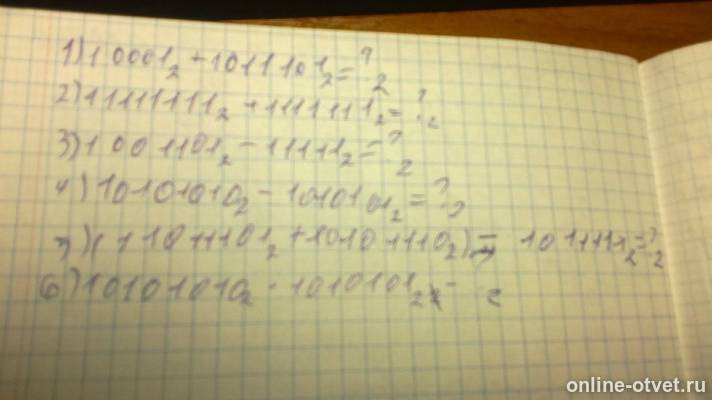 1) 10001₂ + 1011101₂ = ?₂
2) 11111111₂ + 1111111₂ = ?₂
3) 1001101₂ - 11111₂ = ?₂
4) 10101010₂ - 1010101₂ = ?₂
5) (11011101₂ + 10101110₂) - 1011111₂ = ?₂
6) 10101010₂ · 1010101₂
online-otvet.ru